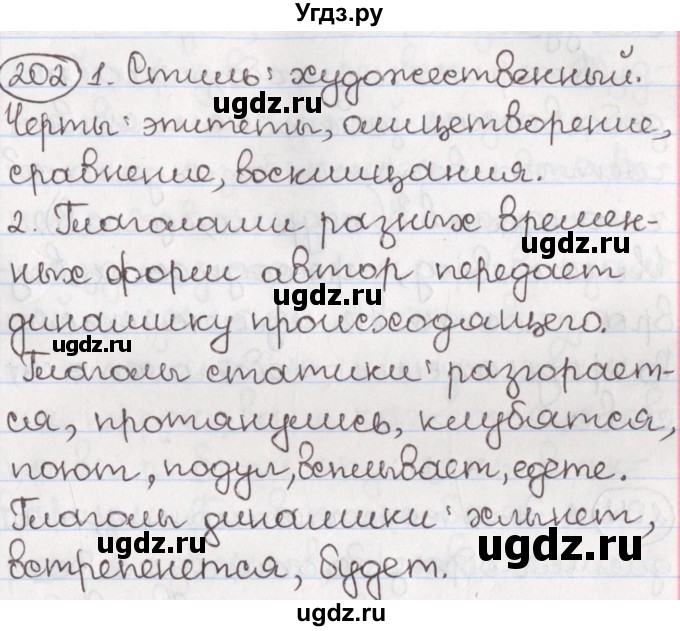 Угдз.ру
202 1. Стиль: художественный.
ugdz.ru ugdz.ru
Черты: эпитеты, олицетворение,
сравнение, восклицания.
ugdz.ru
2. Глаголами разных времен-
ugdz.ru
ных форм автор передает
динамику происходящего.
ugdz.ru
Глаголы статики: разгорает-
ugdz.ru
ся, протянулись, клубятся,
поют, подул, всплывает, едете.
ugdz.ru
Глаголы динамики: хлынет,
ugdz.ru ugdz.ru
встрепенется, будет.
ugdz.ru